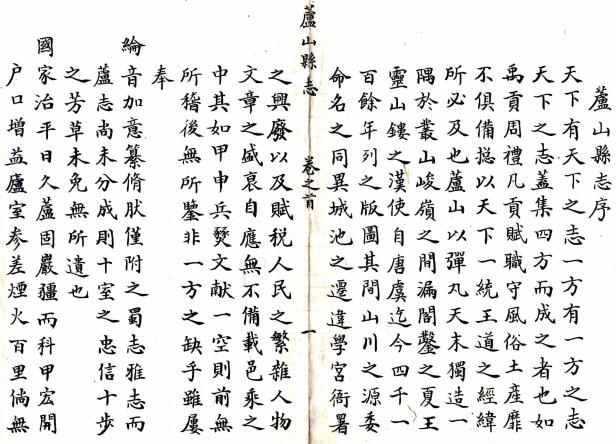 蘆山縣志序
天下有天下之志一方有一方之志
天下之志蓋集四方而成之者也如
禹貢周禮凡貢賦職守風俗土產靡
不俱備揔以天下一統王道之經緯
所必及也蘆山以彈丸天末獨造一
隅於叢山峻嶺之間漏閣鑿之夏王
靈山鏤之漢使自唐虞迄今四千一
百餘年列之版圖其間山川之源委
命名之同異城池之遷違學宮衙署
蘆山縣志 卷之首 一
之興廢以及賦稅人民之繁雜人物
文章之盛衰自應無不備載邑乘之
中其如甲申兵燹文献一空則前無
所稽後無所鑒非一方之缺乎雖屢
奉
綸音加意纂脩肰僅附之蜀志雅志而
蘆志尚未分成則十室之忠信十步
之芳草未免無所遺也
國家治平日久蘆固嚴疆而科甲宏開
户口增益廬室參差煙火百里倘無